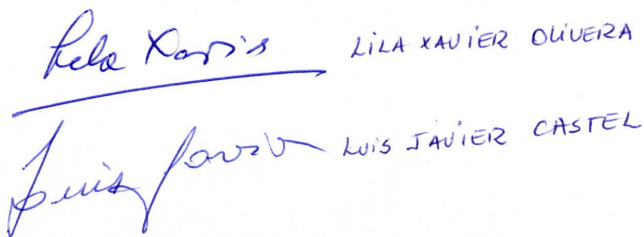 Lila Xavier LiLA XAViER OLiVERA
Luis Javier LUiS JAViER CASTEL